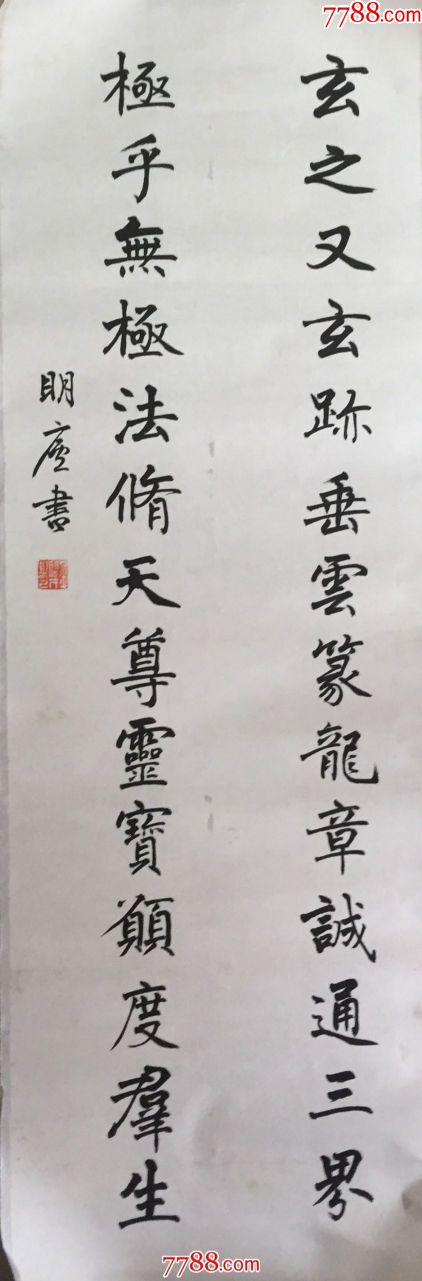 7788.com
玄之又玄跡垂雲篆龍章誠通三界
極乎無極法脩天尊靈寶願度羣生
明廬書
7788.com